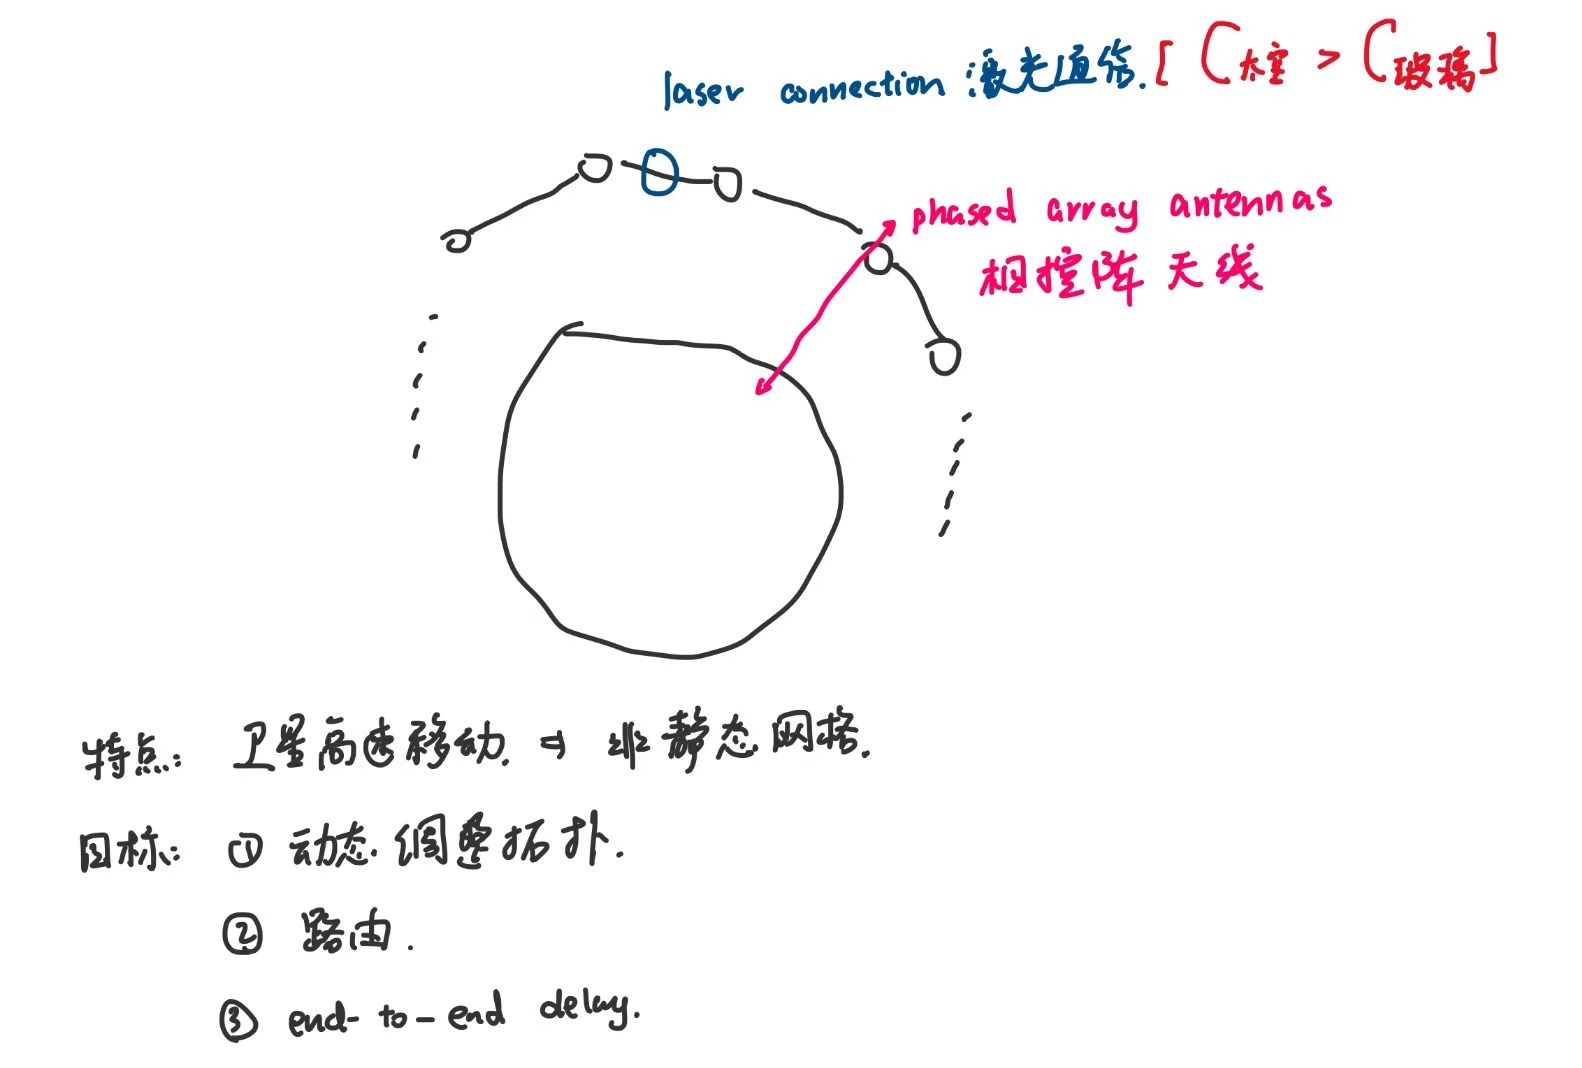 laser connection 激光通信. [ C太空 > C玻璃 ]
phased array antennas
相控阵天线
特点: 卫星高速移动. ⇒ 非静态网格.
目标: ① 动态调整拓扑.
② 路由.
③ end-to-end delay.